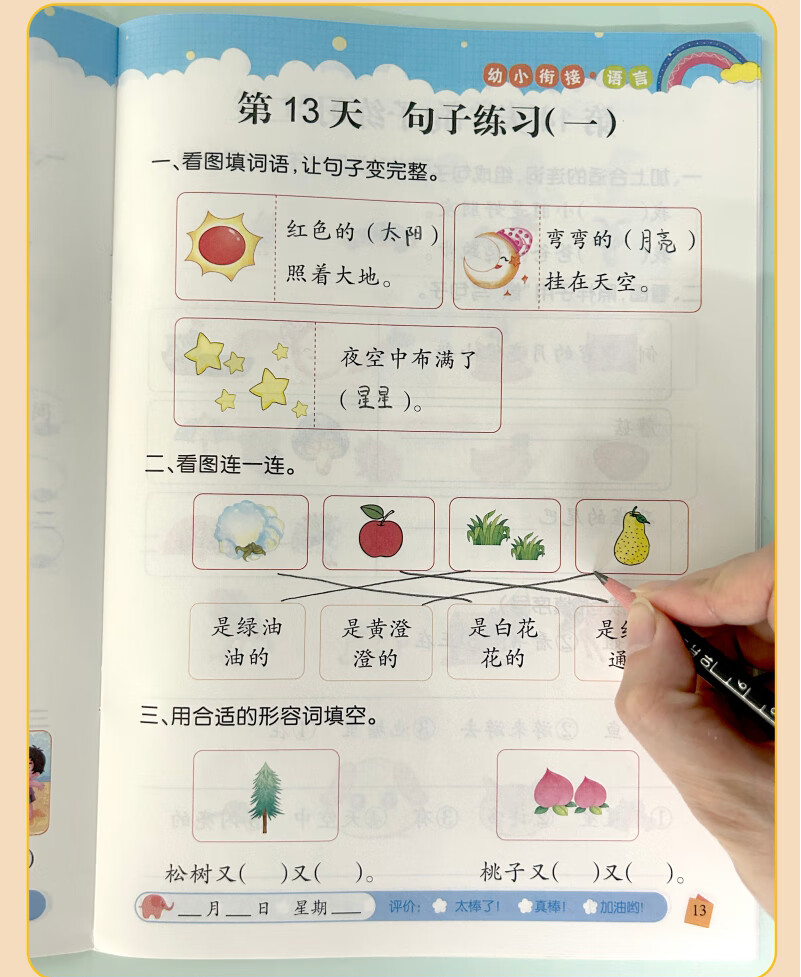 幼小衔接·语言
第13天 句子练习(一)
一、看图填词语,让句子变完整。
红色的(太阳)
照着大地。
弯弯的(月亮)
挂在天空。
夜空中布满了
(星星)。
二、看图连一连。
是绿油
油的
是黄澄
澄的
是白花
花的
是
通
三、用合适的形容词填空。
松树又( )又( )。
桃子又( )又( )。
月 日 星期
评价: 太棒了! 真棒! 加油哟!
13